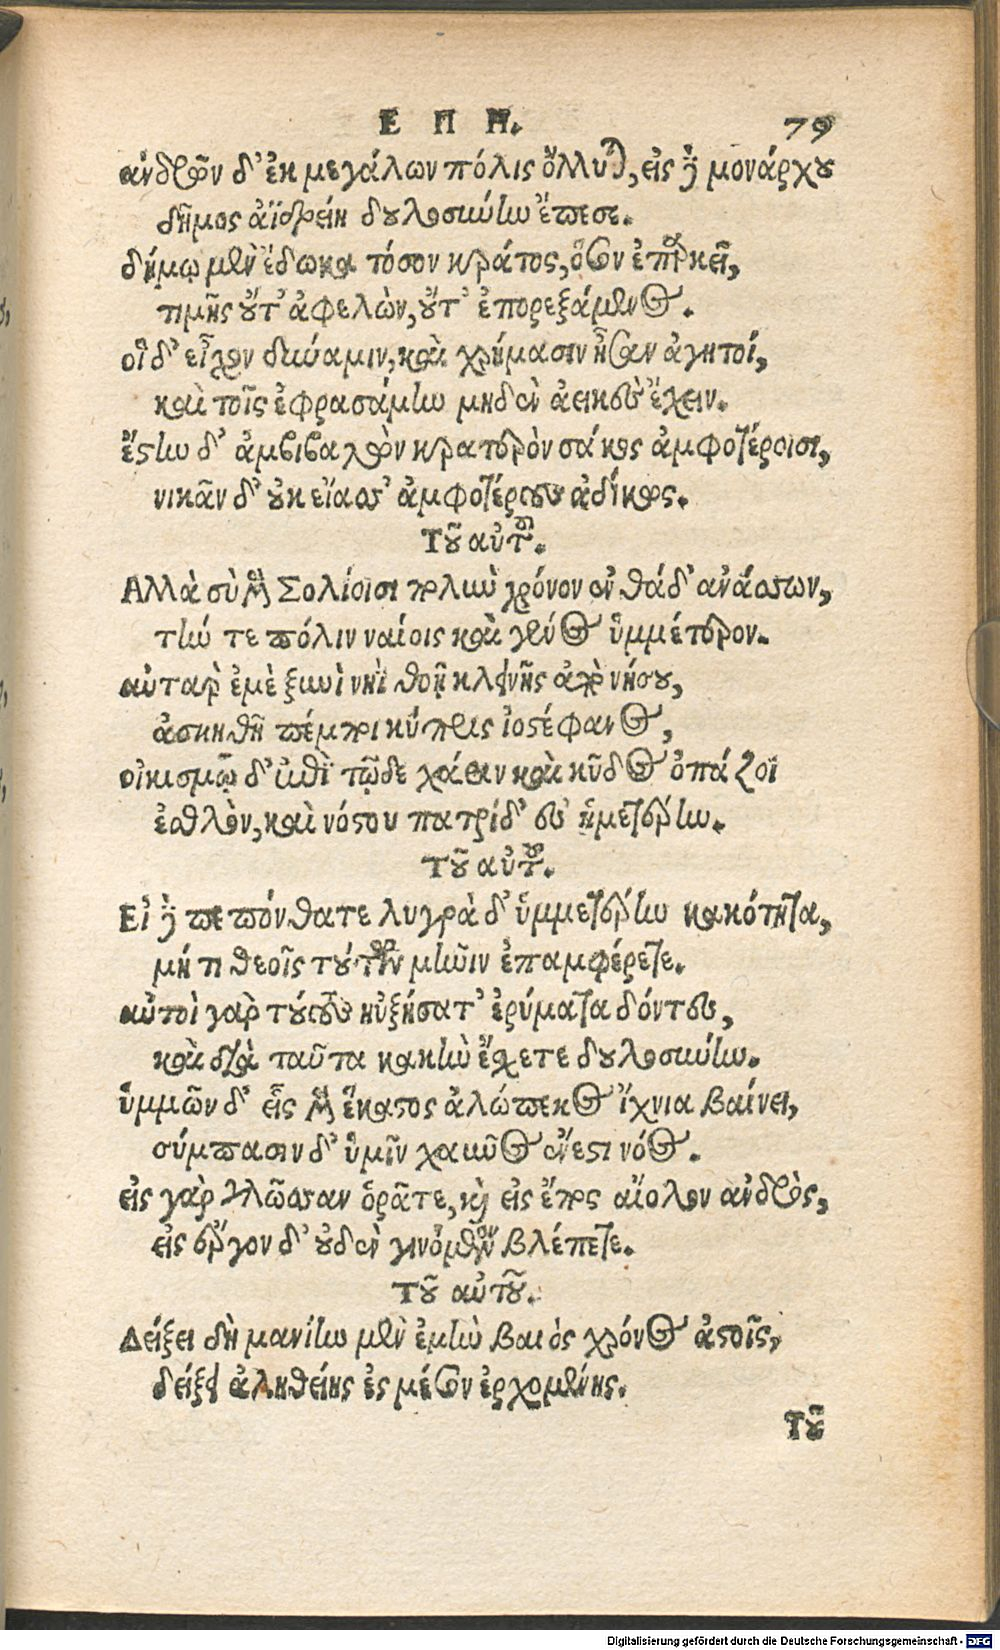 ΕΠΗ. 79
ἀνδρῶν δ' ἐκ μεγάλων πόλις ὄλλυται, εἰς δὲ μονάρχου
δῆμος ἀϊδρείη δουλοσύνην ἔπεσε.
δήμῳ μὲν ἔδωκα τόσον κράτος, ὅσσον ἐπαρκεῖ,
τιμῆς οὔτ' ἀφελὼν, οὔτ' ἐπορεξάμενος.
οἳ δ' εἶχον δύναμιν, καὶ χρήμασιν ἦσαν ἀγητοί,
καὶ τοῖς ἐφρασάμην μηδὲν ἀεικὲς ἔχειν.
ἔστην δ' ἀμβιβαλὼν κρατερὸν σάκος ἀμφοτέροισι,
νικᾶν δ' οὐκ εἴασ' ἀμφοτέρους ἀδίκως.
Τοῦ αὐτοῦ.
Αλλὰ σὺ μὲν Σολίοισι πολὺν χρόνον ἐνθάδ' ἀνάσσων,
τήν τε πόλιν ναίοις καὶ γένος ὑμμέτερον.
αὐτὰρ ἐμὲ ξὺν νηῒ θοῇ κλεινῆς ἀπὸ νήσου,
ἀσκηθῆ πέμποι κύπρις ἰοστέφανος,
οἰκισμῷ δ' ἐπὶ τῷδε χάριν καὶ κῦδος ὀπάζοι
ἐσθλὸν, καὶ νόστου πατρίδ' ἐς ἡμετέρην.
Τοῦ αὐτοῦ.
Εἰ δὲ πεπόνθατε λυγρὰ δ' ὑμμετέρην κακότητα,
μή τι θεοῖς τούτων μῆνιν ἐπαμφέρετε.
αὐτοὶ γὰρ τούτους ηὐξήσατ' ἐρύματα δόντες,
καὶ διὰ ταῦτα κακὴν ἔσχετε δουλοσύνην.
ὑμμῶν δ' εἷς μὲν ἕκαστος ἀλώπεκος ἴχνια βαίνει,
σύμπασιν δ' ὑμῖν χαῦνος ἔνεστι νόος.
εἰς γὰρ γλῶσσαν ὁρᾶτε, καὶ εἰς ἔπος αἴολον ἀνδρὸς,
εἰς ἔργον δ' οὐδὲν γινόμενον βλέπετε.
Τοῦ αὐτοῦ.
Δείξει δὴ μανίην μὲν ἐμὴν βαιὸς χρόνος ἀστοῖς,
δείξει ἀληθείης ἐς μέσον ἐρχομένης.
Τοῦ
Digitalisierung gefördert durch die Deutsche Forschungsgemeinschaft - DFG